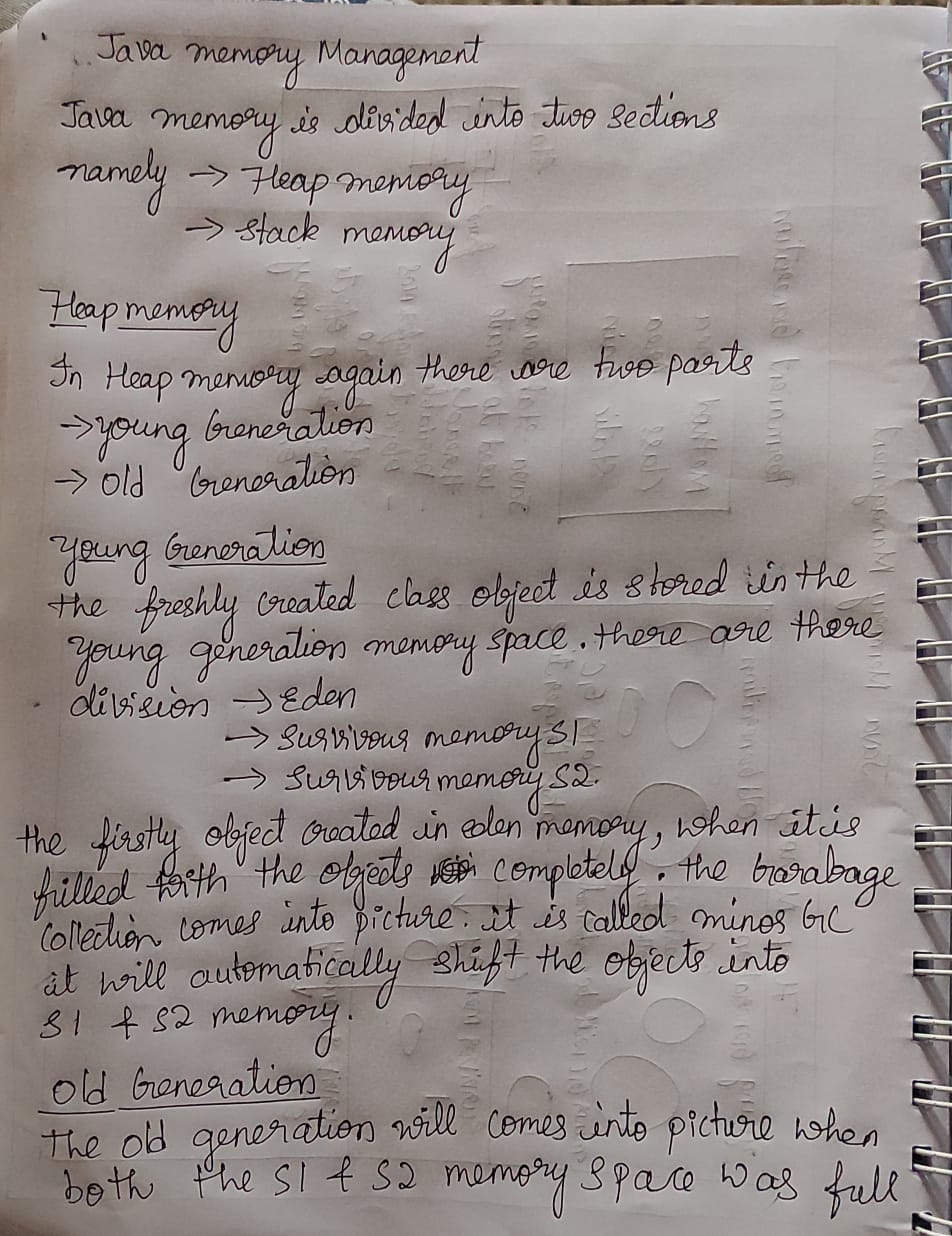 Java memory Management
Java memory is divided into two sections
namely → Heap memory
→ stack memory
Heap memory
In Heap memory again there are two parts
→ young Generation
→ old Generation
Young Generation
the freshly created class object is stored in the
young generation memory space. there are there
division → Eden
→ Survivour memory S1
→ Survivour memory S2.
the firstly object created in eden memory, when it is
filled with the objects completely. the Garabage
Collection comes into picture. it is called minor GC
it will automatically shift the objects into
S1 & S2 memory.
Old Generation
The old generation will comes into picture when
both the S1 & S2 memory space was full